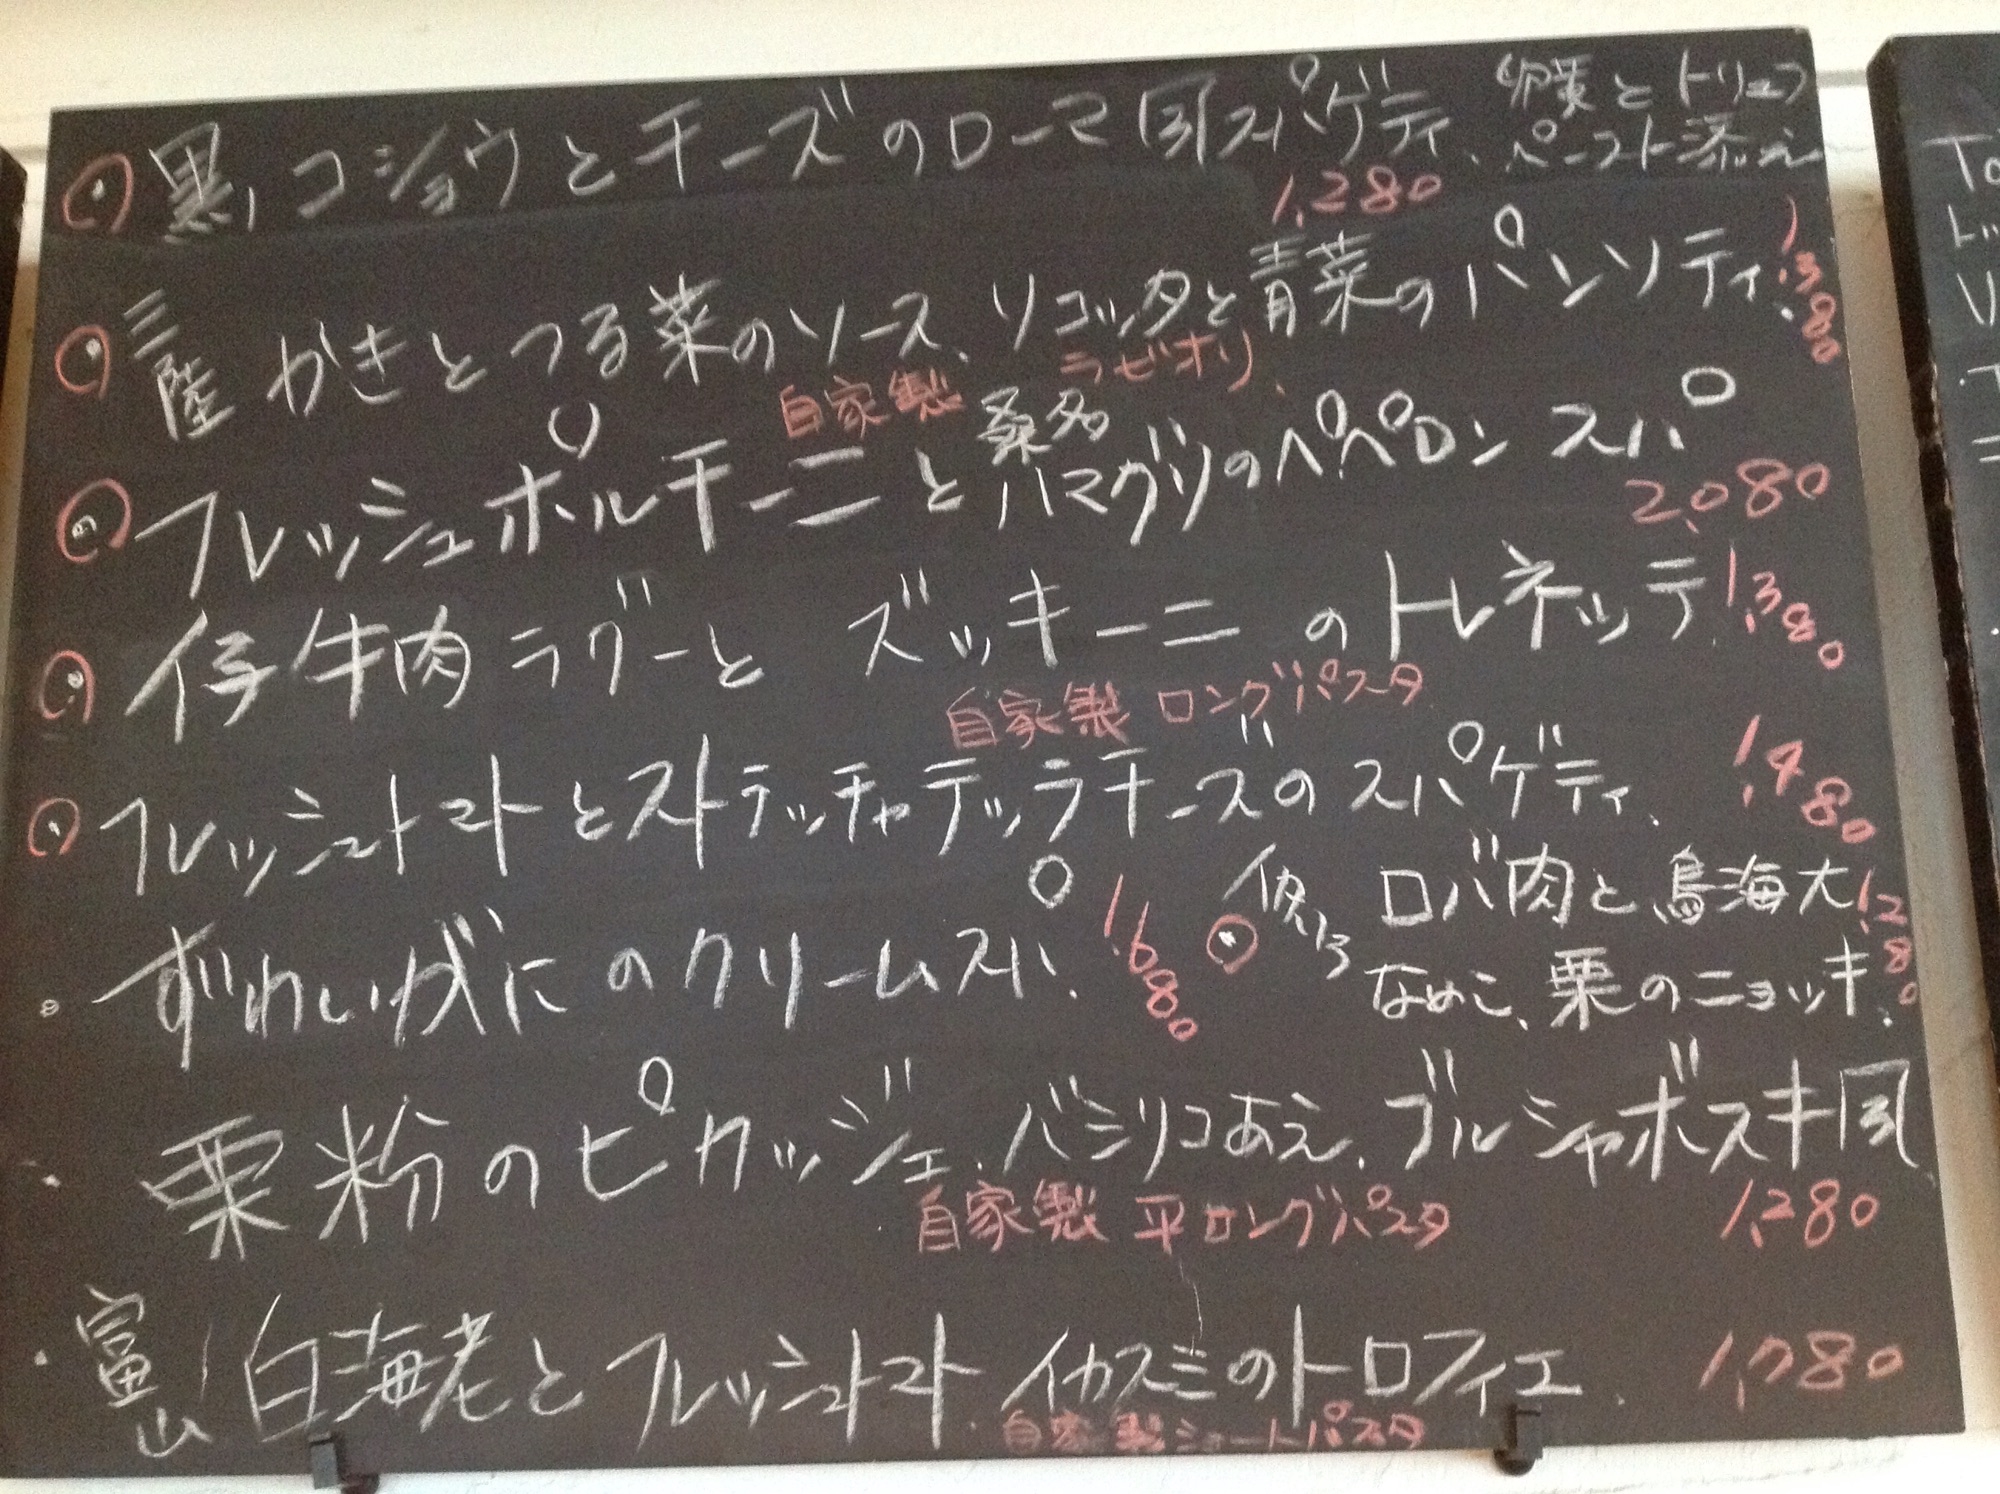 黒コショウとチーズのローマ風スパゲティ、卵黄とトリュフ
ペースト添え
1,280
三陸 かきとつる菜のソース、リコッタと青菜のパンソティ. 1,380
自家製 ラビオリ、
フレッシュポルチーニと桑名ハマグリのペペロンスパ
2,080
仔牛肉ラグーと ズッキーニのトレネッテ. 1,380
自家製 ロングパスタ
フレッシュトマトとストラッチャテッラチーズのスパゲティ. 1,480
ずわいがにのクリームスパ. 1,680
ロバ肉と鳥海大
なめこ、栗のニョッキ. 1,280
栗粉のピカッジェ. バジリコあえ、ブルシャボスキ風
自家製 平ロングパスタ 1,280
富山 白海老とフレッシュトマト. イカスミのトロフィエ. 1,780
自家製ショートパスタ